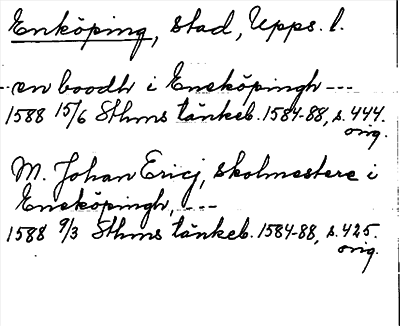 Enköping, stad, Upps. l.
-- en boodh i Eneköpingh ---
1588 15/6 Sthms tänkeb. 1584-88, s. 444.
orig.
M. Johan Ericj, skolmestere i
Eneköpingh, ---
1588 9/3 Sthms tänkeb. 1584-88, s. 425.
orig.